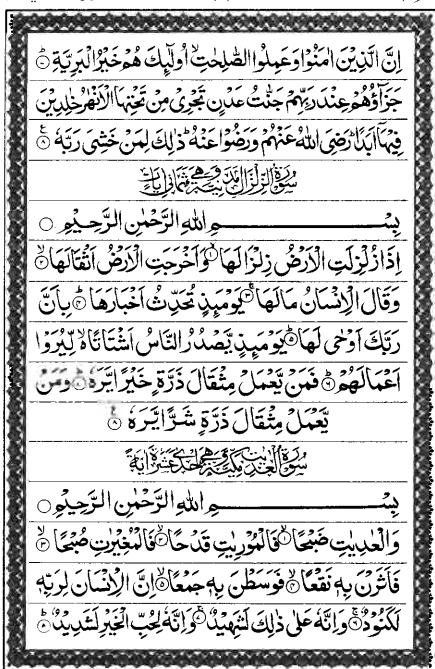 اِنَّ الَّذِيْنَ اٰمَنُوْا وَعَمِلُوا الصّٰلِحٰتِ اُولٰٓئِكَ هُمْ خَيْرُ الْبَرِيَّةِ ۝
جَزَآؤُهُمْ عِنْدَ رَبِّهِمْ جَنّٰتُ عَدْنٍ تَجْرِيْ مِنْ تَحْتِهَا الْاَنْهٰرُ خٰلِدِيْنَ
فِيْهَآ اَبَدًا رَضِيَ اللّٰهُ عَنْهُمْ وَرَضُوْا عَنْهُ ذٰلِكَ لِمَنْ خَشِيَ رَبَّهٗ ۝۸
سُوْرَةُ الزِّلْزَالِ مَدَنِيَّةٌ وَّهِيَ ثَمَانِيْ اٰيَاتٍ
بِسْمِ اللّٰهِ الرَّحْمٰنِ الرَّحِيْمِ ۝
اِذَا زُلْزِلَتِ الْاَرْضُ زِلْزَالَهَا ۝۱ وَاَخْرَجَتِ الْاَرْضُ اَثْقَالَهَا ۝۲
وَقَالَ الْاِنْسَانُ مَا لَهَا ۝۳ يَوْمَئِذٍ تُحَدِّثُ اَخْبَارَهَا ۝۴ بِاَنَّ
رَبَّكَ اَوْحٰى لَهَا ۝۵ يَوْمَئِذٍ يَّصْدُرُ النَّاسُ اَشْتَاتًا لِّيُرَوْا
اَعْمَالَهُمْ ۝۶ فَمَنْ يَّعْمَلْ مِثْقَالَ ذَرَّةٍ خَيْرًا يَّرَهٗ ۝۷ وَمَنْ
يَّعْمَلْ مِثْقَالَ ذَرَّةٍ شَرًّا يَّرَهٗ ۝۸
سُوْرَةُ الْعٰدِيٰتِ مَكِّيَّةٌ وَّهِيَ اِحْدٰى عَشْرَةَ اٰيَةً
بِسْمِ اللّٰهِ الرَّحْمٰنِ الرَّحِيْمِ ۝
وَالْعٰدِيٰتِ ضَبْحًا ۝۱ فَالْمُوْرِيٰتِ قَدْحًا ۝۲ فَالْمُغِيْرٰتِ صُبْحًا ۝۳
فَاَثَرْنَ بِهٖ نَقْعًا ۝۴ فَوَسَطْنَ بِهٖ جَمْعًا ۝۵ اِنَّ الْاِنْسَانَ لِرَبِّهٖ
لَكَنُوْدٌ ۝۶ وَاِنَّهٗ عَلٰى ذٰلِكَ لَشَهِيْدٌ ۝۷ وَاِنَّهٗ لِحُبِّ الْخَيْرِ لَشَدِيْدٌ ۝۸